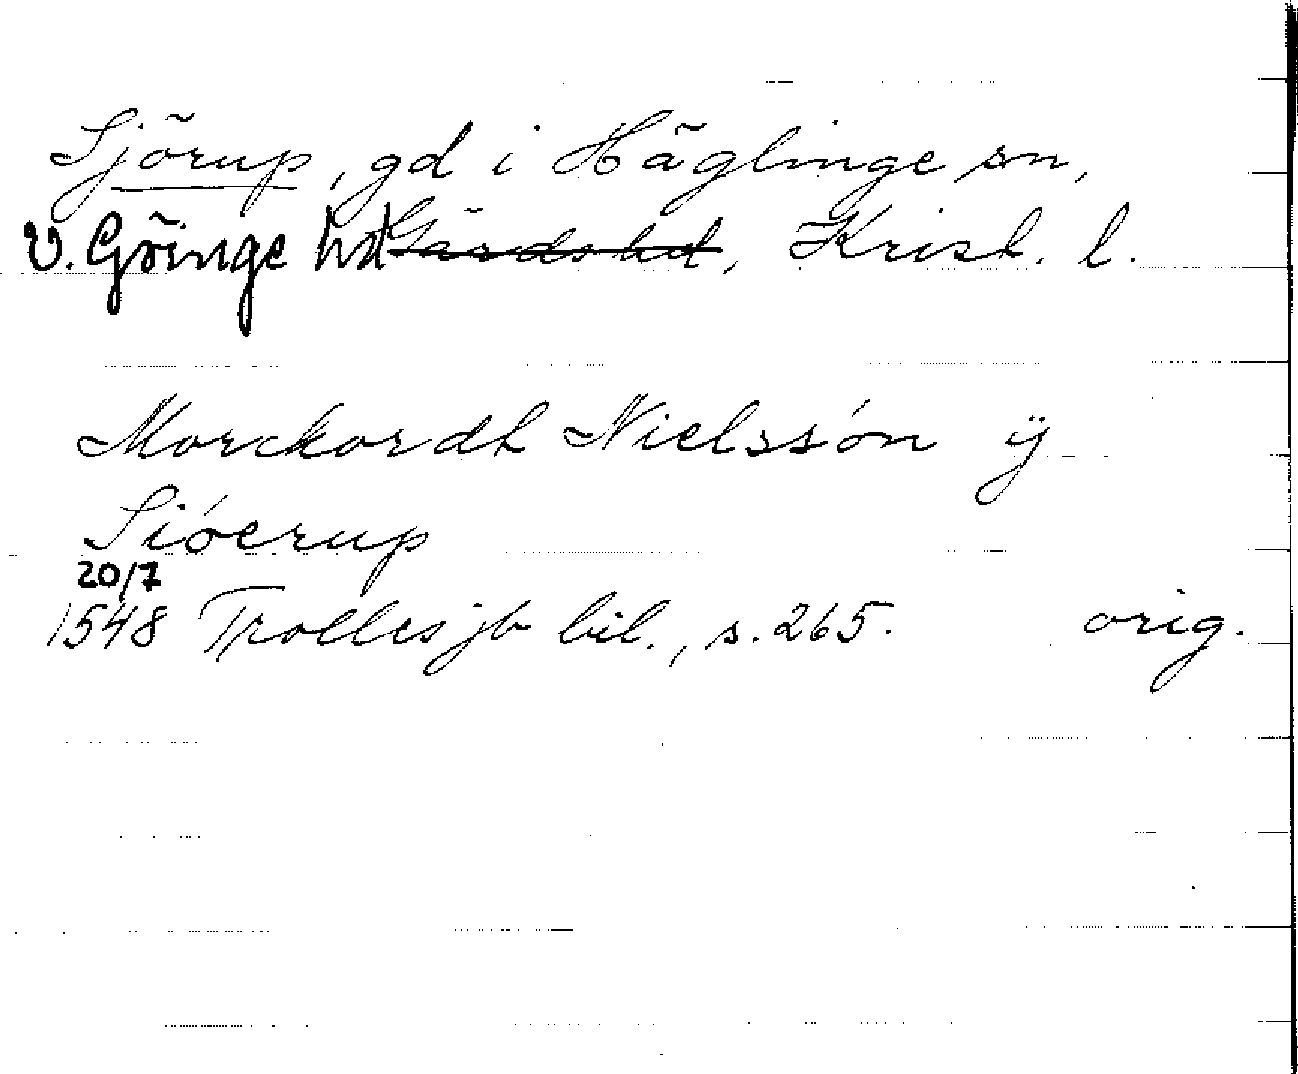 Sjörup, gd i Häglinge sn,
V. Göinge hd Gärds hd, Krist. l.
Morckordt Nielssón ÿ
Siöerup
20/7
1548 Trolles jb bil., s. 265. orig.